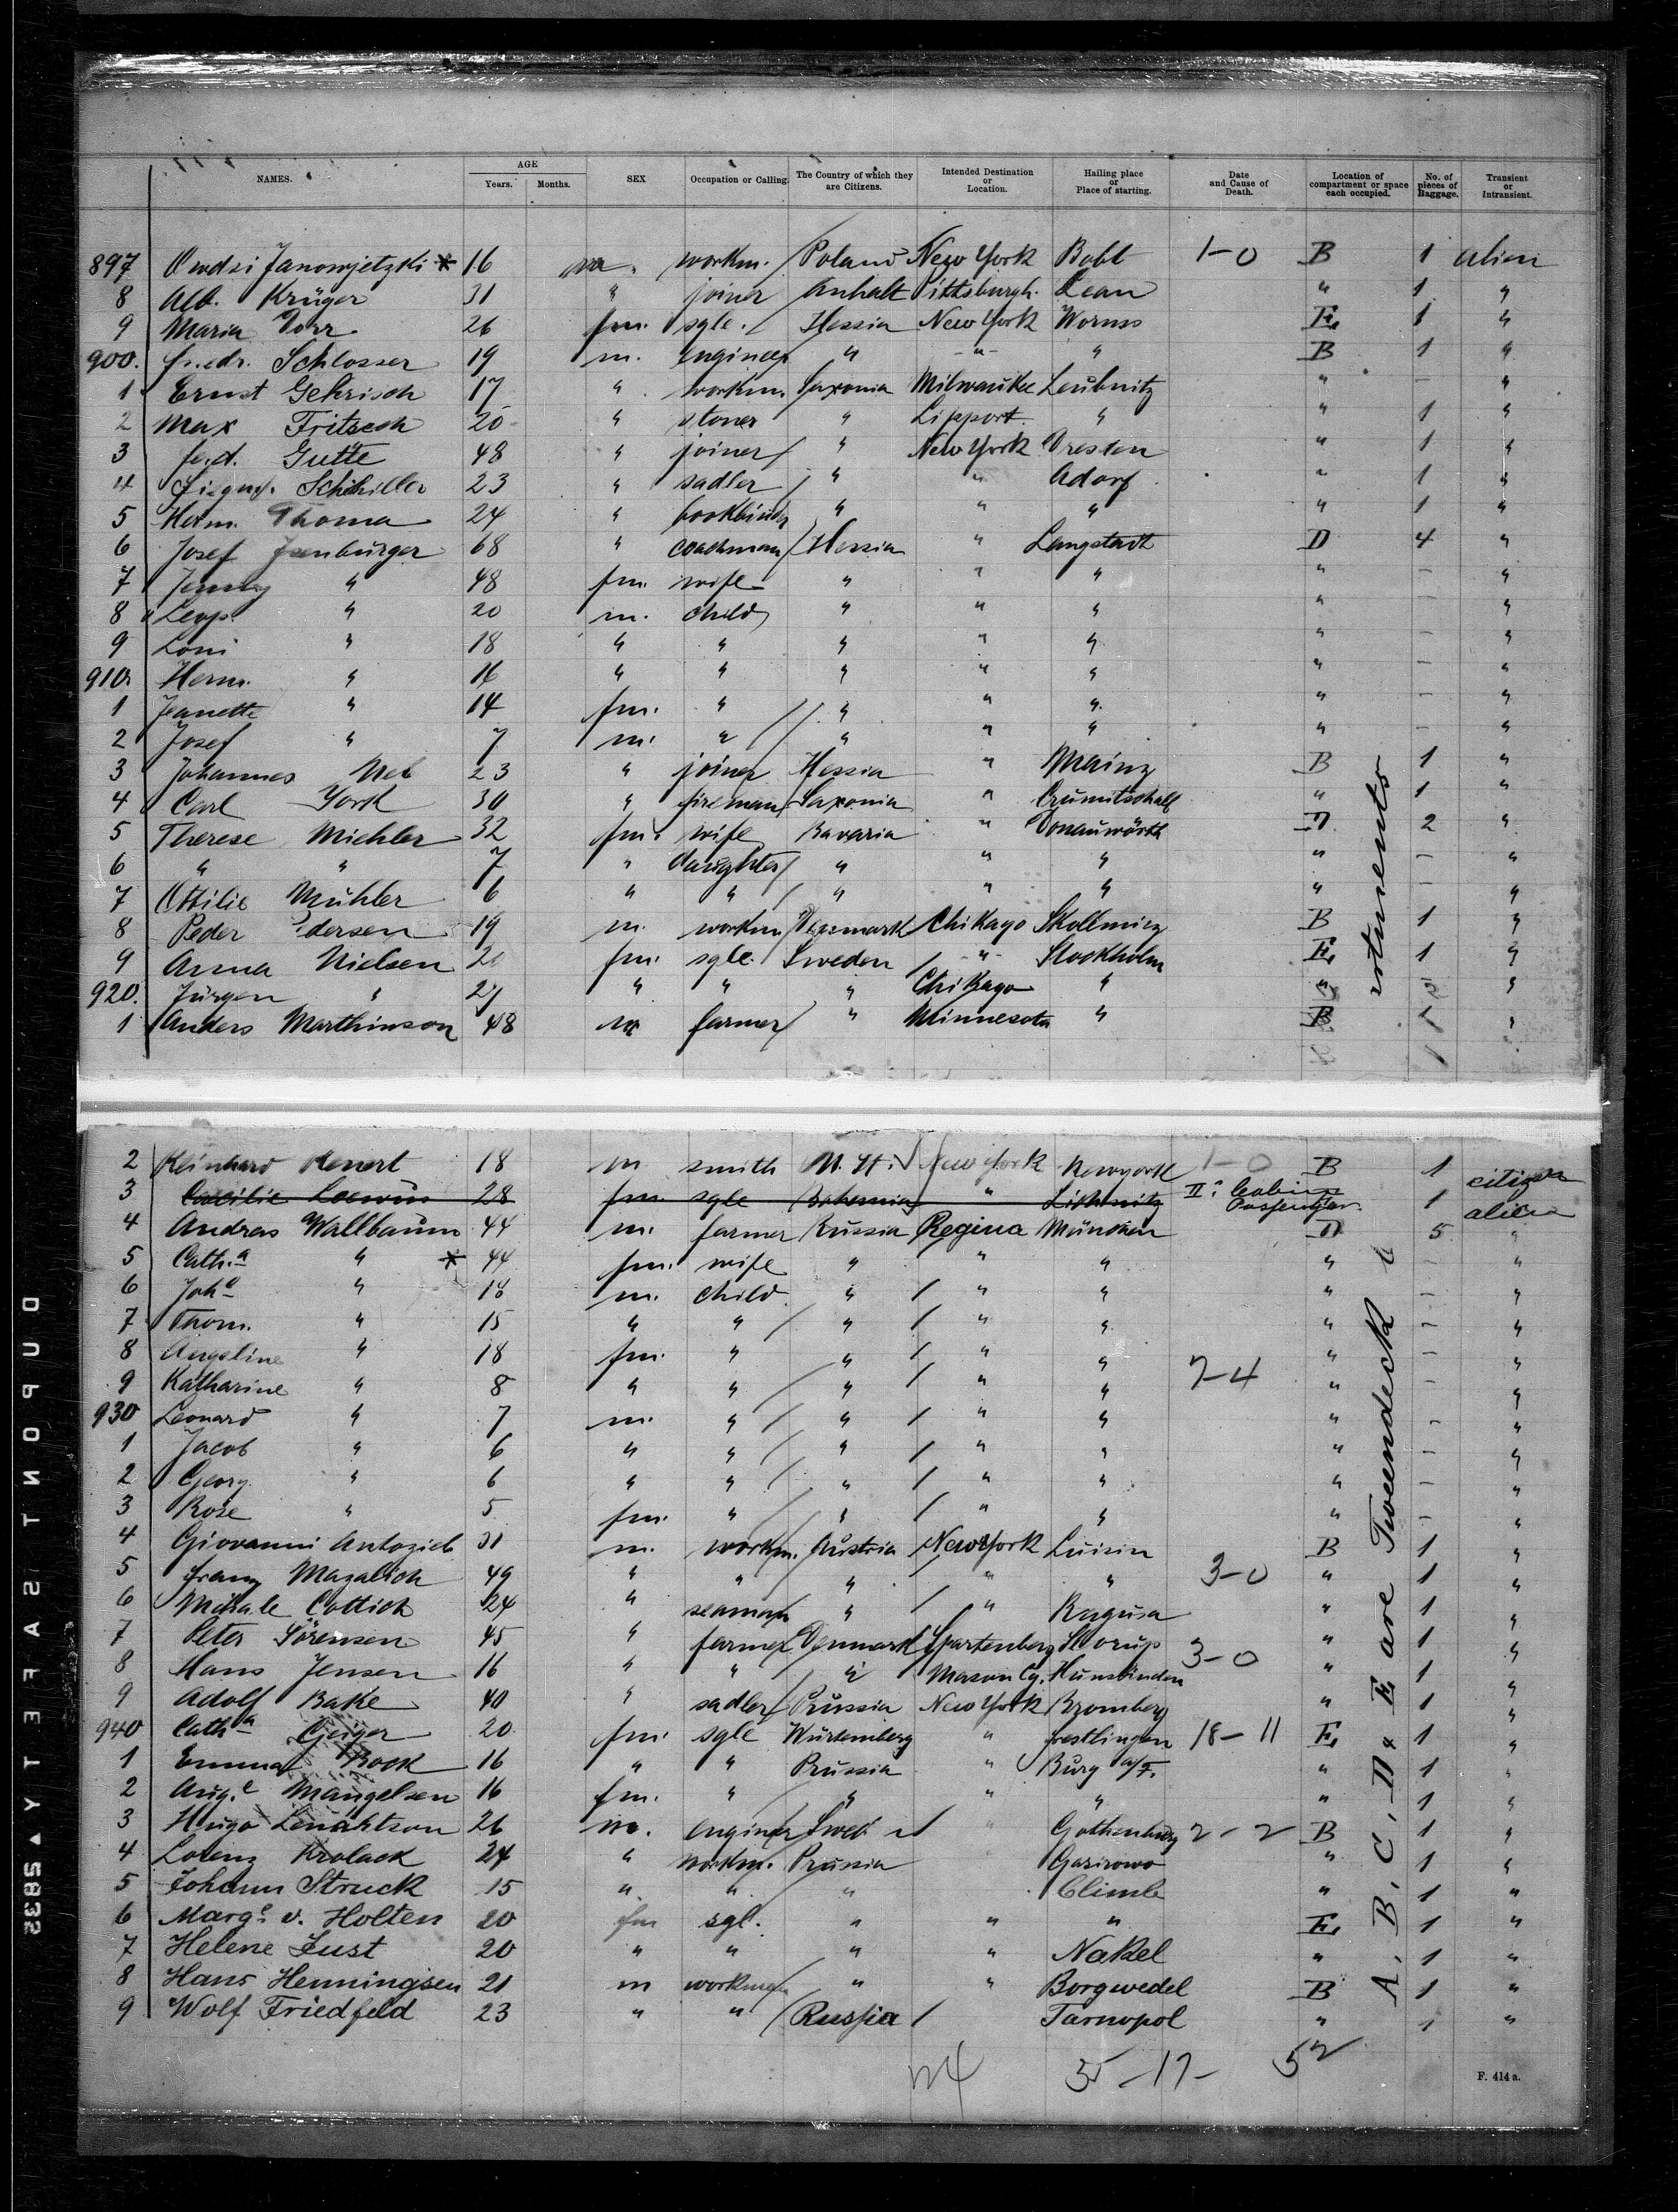 NAMES. AGE Years. Months. SEX Occupation or Calling. The Country of which they are Citizens. Intended Destination or Location. Hailing place or Place of starting. Date and Cause of Death. Location of compartment or space each occupied. No. of pieces of Baggage. Transient or Intransient.
897 Janowjetzki * 16 m. workm. Poland New York 1-0 B 1 alien
8 Alb. Krüger 31 " joiner Anhalt Pittsburgh. " 1 "
9 Maria Dorr 26 fm. sgle. Hessia New York Worms E. 1 "
900. friedr. Schlosser 19 m. engineer " -"- " B 1 "
1 Ernst Gehrisch 17 " workm. Saxonia Milwaukee Leubnitz " - "
2 Max Fritzsch 20 " stoner " Lipport " " 1 "
3 ferd. Gutte 48 " joiner " New York Dresten " 1 "
4 Schhiller 23 " sadler " " Adorf " 1 "
5 Herm. Thoma 24 " bookbinder " " " " 1 "
6 Josef Isenburger 68 " coachman Hessia " Langstadt D 4 "
7 Jenny " 48 fm. wife " " " " - "
8 Leop. " 20 m. child " " " " - "
9 Loni " 18 " " " " " " - "
910. Herm. " 16 " " " " " " - "
1 Jeanette " 14 fm. " " " " " - "
2 Josef " 7 m. " " " " " - "
3 Johannes 23 " joiner Hessia " Mainz B 1 "
4 Carl York 30 " fireman Saxonia " " 1 "
5 Therese Miehler 32 fm. wife Bavaria " Donauwörth D 2 "
6 " " 7 " daughter " " " " - "
7 Ottilie Mühler 6 " " " " " " - "
8 Peder Pedersen 19 m. workm. Denmark Chikago B 1 "
9 Anna Nielsen 20 fm. sgle. Sweden -"- Stockholm E. 1 "
920. Jürgen " 21 " " " Chikago " " "
1 Anders Marthinson 48 m farmer " Minnesota " B 1 "
2 Reinhard 18 m smith New York Newyork 1-0 B 1 citizen
3 Caecilie 28 fm. sgle Bohemia " II. Cabin Passenger. 1 alien
4 Andreas Wallbaum 44 m. farmer Russia Regina München D 5 "
5 Cath.a " * 44 fm. wife " " " " - "
6 Joh.e " 18 m. child " " " " - "
7 Thom. " 15 " " " " " " - "
8 Angeline " 18 fm. " " " " " - "
9 Katharine " 8 " " " " " 7-4 " - "
930 Leonard " 7 m. " " " " " - "
1 Jacob " 6 " " " " " " - "
2 Georg " 6 " " " " " " - "
3 Rose " 5 fm. " " " " " - "
4 Giovanni 31 m. workm. Austria New York B 1 "
5 franz Mazalich 49 " " " " " 3-0 " 1 "
6 Cottich 24 " seaman " " Ragusa " 1 "
7 Peter Sörensen 45 " farmer Denmark Spartenberg " 1 "
8 Hans Jensen 16 " " " Mason Cy. 3-0 " 1 "
9 Adolf Bake 40 " sadler Prussia New York Bromberg " 1 "
940 Cath.a Geiger 20 fm. sgle Würtemberg " 18-11 E. 1 "
1 Emma Bock 16 " " Prussia " Burg a/F. " 1 "
2 Aug.e Mangelsen 16 fm. " " " " " 1 "
3 Hugo 26 m. engineer " Gothenburg 2-2 B 1 "
4 Lorenz Krolack 24 " workm. Prussia " 1 "
5 Johann Struck 15 " " " " 1 "
6 Marg.e v. Holten 20 fm sgl. " " " E. 1 "
7 Helene Just 20 " " " " Nakel " 1 "
8 Hans Henningsen 21 m workman " " Borgwedel B 1 "
9 Wolf Friedfeld 23 " " Russia Tarnopol " 1 "
A, B, C, D, & E are Tweendeck
5-17- 52
F. 414 a.
DUPONT SAFETY ▲ 5833